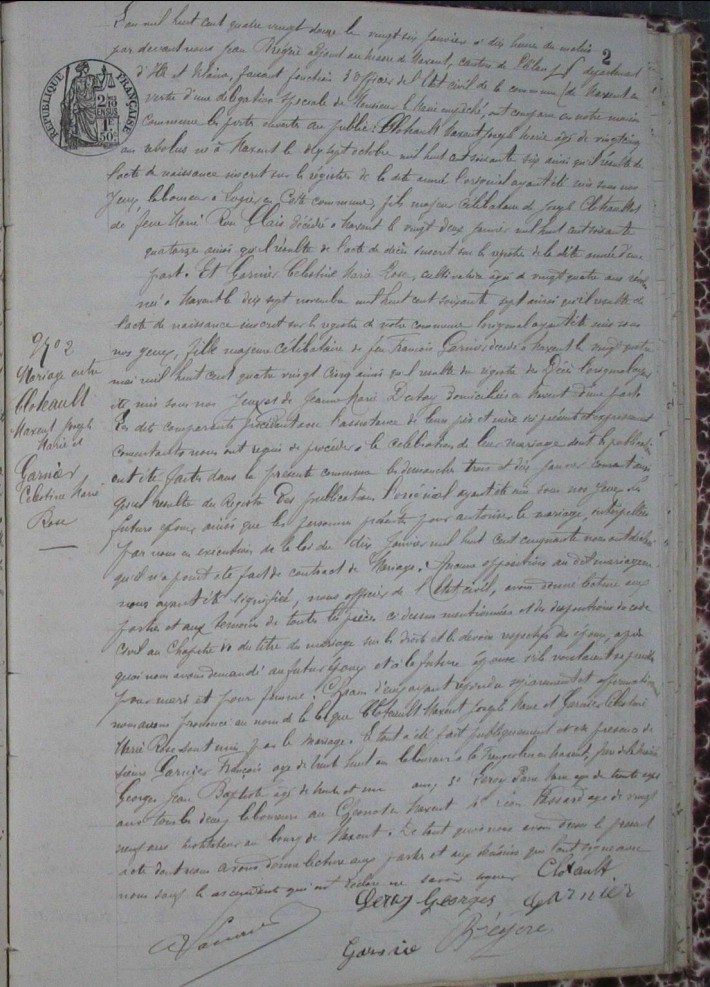 2
L'an mil huit cent quatre vingt douze le vingt six Janvier à dix heures du matin
par devant nous Jean adjoint au maire de Maxent, canton de Plélan département
d'Ille et Vilaine, faisant fonction d'officier de l'Etat civil de la commune de Maxent en
RÉPUBLIQUE FRANÇAISE
vertu d'une délégation spéciale de Monsieur le Maire empêché, ont comparu en notre maison
Commune la porte ouverte au public: Cloteault Maxent Joseph Marie âgé de vingt cinq
ans révolus né à Maxent le dix sept octobre mil huit cent soixante six ainsi qu'il résulte de
l'acte de naissance inscrit sur le registre de la dite année l'original ayant été mis sous nos
yeux, laboureur à en cette commune, fils majeur célibataire de Joseph Cloteault et
de feue Marie Rose décédée à Maxent le vingt deux Janvier mil huit cent soixante
quatorze ainsi qu'il résulte de l'acte de décès inscrit sur le registre de la dite année d'une
part. Et Garnier Célestine Marie Rose, cultivatrice âgée de vingt quatre ans
née à Maxent le dix sept novembre mil huit cent soixante sept ainsi qu'il résulte de
l'acte de naissance inscrit sur le registre de notre commune l'original ayant été mis sous
nos yeux, fille majeure célibataire de feu François Garnier, décédé à Maxent le vingt quatre
mai mil huit cent quatre vingt cinq ainsi qu'il résulte du registre de Décès l'original ayant
été mis sous nos yeux et de Jeanne Marie domiciliée en Maxent d'une part
Les dits comparants procédant sous l'assistance de leurs père et mère ici présents et
consentants nous ont requis de procéder à la célébration de leur mariage dont les publications
ont été faites dans la présente commune les dimanches trois et dix Janvier courant ainsi
qu'il résulte du Registre des publications l'original ayant été mis sous nos yeux. Les
futurs époux ainsi que les personnes présentes pour autoriser le mariage interpellés
par nous en exécution de la loi du dix Janvier mil huit cent cinquante nous ont déclaré
qu'il n'a point été fait de contrat de Mariage. Aucune opposition au dit mariage
nous ayant été signifiée, nous officier de l'Etat civil, avons donné lecture aux
parties et aux témoins de toutes les pièces ci dessus mentionnées et des dispositions du code
civil au Chapitre VI du titre du mariage sur les droits et les devoirs respectifs des époux, après
quoi nous avons demandé au futur époux et à la future épouse s'ils voulaient se prendre
pour mari et pour femme. Chacun d'eux ayant répondu séparément et affirmativement
nous avons prononcé au nom de la loi que Cloteault Maxent Joseph Marie et Garnier Célestine
Marie Rose sont unis par le mariage. Le tout a été fait publiquement et en présence de
sieurs Garnier François âgé de trente huit ans laboureur à en Maxent, frère de la mariée
Georges Jean Baptiste âgé de trente et un ans, 3° âgé de trente
ans tous les deux laboureurs au en Maxent 4° âgé de vingt
neuf ans instituteur au bourg de Maxent. De tout quoi nous avons dressé le présent
acte dont nous avons donné lecture aux parties et aux témoins qui l'ont signé avec
nous sauf les ascendants qui ont déclaré ne savoir signer Cloteault
Georges Garnier
Garnier
N° 2
Mariage entre
Cloteault
Maxent Joseph
Marie et
Garnier
Célestine Marie
Rose